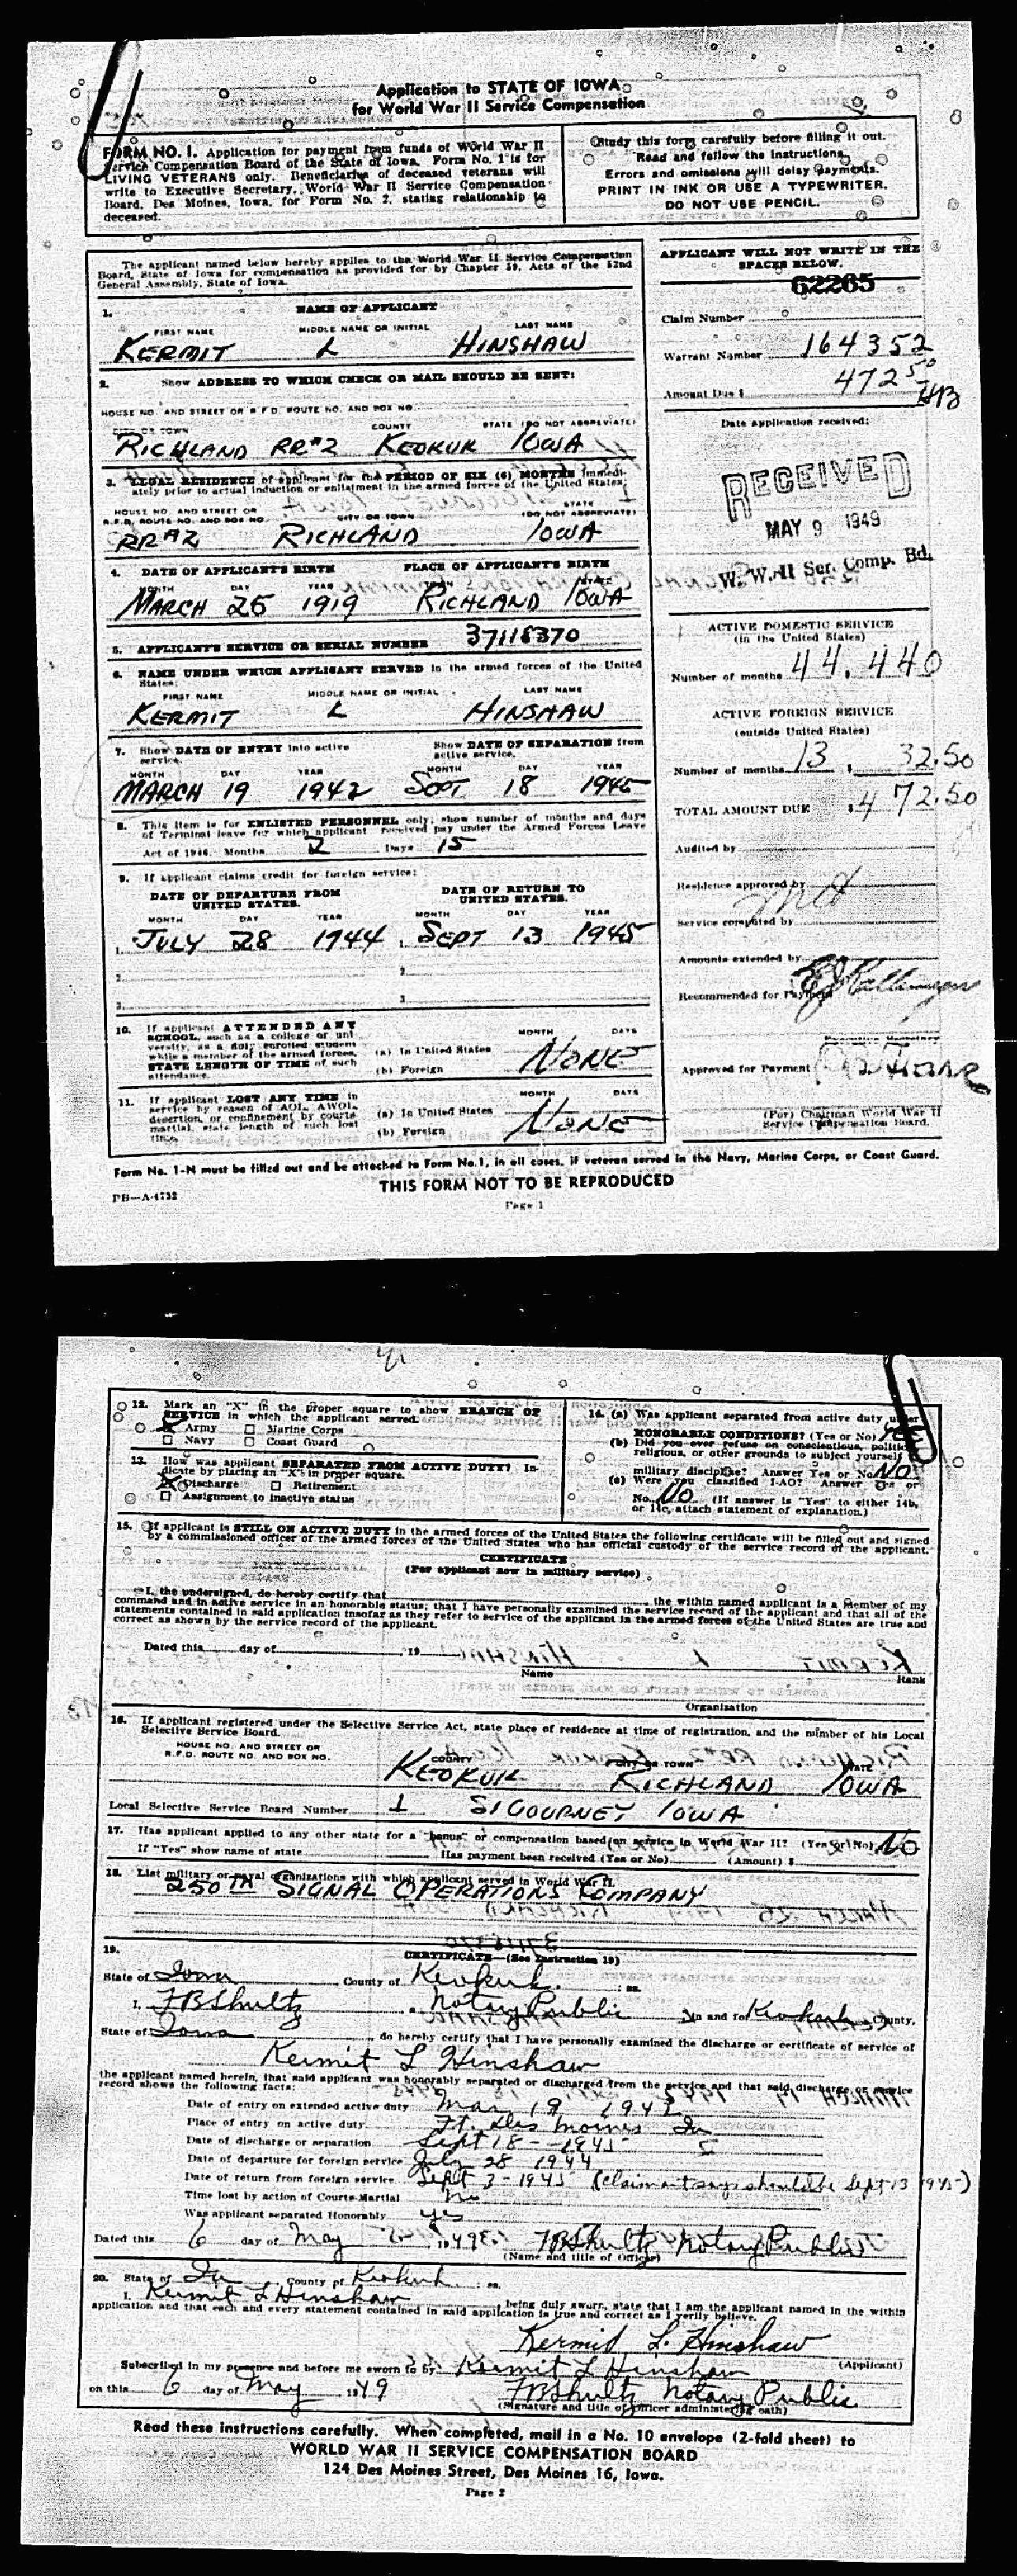 Application to STATE OF IOWA
for World War II Service Compensation
FORM NO. 1. Application for payment from funds of World War II
Service Compensation Board of the State of Iowa. Form No. 1 is for
LIVING VETERANS only. Beneficiaries of deceased veterans will
write to Executive Secretary, World War II Service Compensation
Board, Des Moines, Iowa, for Form No. 2, stating relationship to
deceased.
Study this form carefully before filling it out.
Read and follow the instructions.
Errors and omissions will delay payments.
PRINT IN INK OR USE A TYPEWRITER.
DO NOT USE PENCIL.
The applicant named below hereby applies to the World War II Service Compensation
Board, State of Iowa for compensation as provided for by Chapter 59, Acts of the 52nd
General Assembly, State of Iowa.
1. NAME OF APPLICANT
FIRST NAME MIDDLE NAME OR INITIAL LAST NAME
KERMIT L HINSHAW
2. Show ADDRESS TO WHICH CHECK OR MAIL SHOULD BE SENT:
HOUSE NO. AND STREET OR R.F.D. ROUTE NO. AND BOX NO.
CITY OR TOWN COUNTY STATE (DO NOT ABBREVIATE)
RICHLAND RR#2 KEOKUK IOWA
3. LEGAL RESIDENCE of applicant for the PERIOD OF SIX (6) MONTHS immedi-
ately prior to actual induction or enlistment in the armed forces of the United States:
HOUSE NO. AND STREET OR
R.F.D. ROUTE NO. AND BOX NO. CITY OR TOWN STATE (DO NOT ABBREVIATE)
RR#2 RICHLAND IOWA
4. DATE OF APPLICANT'S BIRTH PLACE OF APPLICANT'S BIRTH
MONTH DAY YEAR TOWN STATE
MARCH 25 1919 RICHLAND IOWA
5. APPLICANT'S SERVICE OR SERIAL NUMBER 37118370
6. NAME UNDER WHICH APPLICANT SERVED in the armed forces of the United
States:
FIRST NAME MIDDLE NAME OR INITIAL LAST NAME
KERMIT L HINSHAW
7. Show DATE OF ENTRY into active
service. Show DATE OF SEPARATION from
active service.
MONTH DAY YEAR MONTH DAY YEAR
MARCH 19 1942 SEPT 18 1945
8. This item is for ENLISTED PERSONNEL only; show number of months and days
of Terminal leave for which applicant received pay under the Armed Forces Leave
Act of 1946. Months 2 Days 15
9. If applicant claims credit for foreign service:
DATE OF DEPARTURE FROM
UNITED STATES. DATE OF RETURN TO
UNITED STATES.
MONTH DAY YEAR MONTH DAY YEAR
1. JULY 28 1944 1. SEPT 13 1945
2. 2.
3. 3.
10. If applicant ATTENDED ANY
SCHOOL, such as a college or uni-
versity, as a duly enrolled student
while a member of the armed forces,
STATE LENGTH OF TIME of such
attendance.
MONTH DAYS
(a) In United States
(b) Foreign
NONE
11. If applicant LOST ANY TIME in
service by reason of AOL, AWOL,
desertion, or confinement by courts
martial, state length of such lost
time.
MONTH DAYS
(a) In United States
(b) Foreign
NONE
APPLICANT WILL NOT WRITE IN THE
SPACES BELOW.
62265
Claim Number
Warrant Number 164352
Amount Due $ 472 50
Date application received:
RECEIVED
MAY 9 1949
W. W. II Ser. Comp. Bd.
ACTIVE DOMESTIC SERVICE
(in the United States)
Number of months 44, 440
ACTIVE FOREIGN SERVICE
(outside United States)
Number of months 13 $ 32.50
TOTAL AMOUNT DUE $ 472.50
Audited by
Residence approved by
Service computed by
Amounts extended by
Recommended for Payment
Executive Secretary
Approved for Payment
(For) Chairman World War II
Service Compensation Board.
Form No. 1-N must be filled out and be attached to Form No.1, in all cases, if veteran served in the Navy, Marine Corps, or Coast Guard.
THIS FORM NOT TO BE REPRODUCED
PB—A-4732
Page 1
12. Mark an "X" in the proper square to show BRANCH OF
SERVICE in which the applicant served.
X Army Marine Corps
Navy Coast Guard
13. How was applicant SEPARATED FROM ACTIVE DUTY? In-
dicate by placing an "X" in proper square.
X Discharge Retirement
Assignment to inactive status
14. (a) Was applicant separated from active duty under
HONORABLE CONDITIONS? (Yes or No) Yes
(b) Did you ever refuse on conscientious, political
religious, or other grounds to subject yourself
military discipline? Answer Yes or No No
(c) Were you classified 1-AO? Answer Yes or
No. No (If answer is "Yes" to either 14b,
or 14c, attach statement of explanation.)
15. If applicant is STILL ON ACTIVE DUTY in the armed forces of the United States the following certificate will be filled out and signed
by a commissioned officer of the armed forces of the United States who has official custody of the service record of the applicant.
CERTIFICATE
(For applicant now in military service)
I, the undersigned, do hereby certify that the within named applicant is a Member of my
command and in active service in an honorable status; that I have personally examined the service record of the applicant and that all of the
statements contained in said application insofar as they refer to service of the applicant in the armed forces of the United States are true and
correct as shown by the service record of the applicant.
Dated this day of , 19
Name Rank
Organization
16. If applicant registered under the Selective Service Act, state place of residence at time of registration, and the number of his Local
Selective Service Board.
HOUSE NO. AND STREET OR
R.F.D. ROUTE NO. AND BOX NO. COUNTY CITY OR TOWN STATE
KEOKUK RICHLAND IOWA
Local Selective Service Board Number 1 SIGOURNEY IOWA
17. Has applicant applied to any other state for a "bonus" or compensation based on service in World War II? (Yes or No) No
If "Yes" show name of state Has payment been received (Yes or No) (Amount) $
18. List military or naval organizations with which applicant served in World War II.
250TH SIGNAL OPERATIONS COMPANY
19. CERTIFICATE—(See Instruction 19)
State of Iowa County of Keokuk ss.
I, F B Shultz a Notary Public in and for Keokuk County,
State of Iowa, do hereby certify that I have personally examined the discharge or certificate of service of
Kermit L Hinshaw
the applicant named herein, that said applicant was honorably separated or discharged from the service and that said discharge or service
record shows the following facts:
Date of entry on extended active duty Mar 19 1942
Place of entry on active duty Ft. Des Moines Ia
Date of discharge or separation Sept 18 - 1945
Date of departure for foreign service July 28 1944
Date of return from foreign service Sept 3 - 1945 (Claimant says should be Sept 13 1945)
Time lost by action of Courts-Martial no
Was applicant separated Honorably yes
Dated this 6 day of May 1949 F B Shultz Notary Public
(Name and title of Officer)
20. State of Ia County of Keokuk ss.
I, Kermit L Hinshaw, being duly sworn, state that I am the applicant named in the within
application and that each and every statement contained in said application is true and correct as I verily believe.
Kermit L. Hinshaw
(Applicant)
Subscribed in my presence and before me sworn to by Kermit L Hinshaw
on this 6 day of May 1949 F B Shultz Notary Public
(Signature and title of officer administering oath)
Read these instructions carefully. When completed, mail in a No. 10 envelope (2-fold sheet) to
WORLD WAR II SERVICE COMPENSATION BOARD
124 Des Moines Street, Des Moines 16, Iowa.
Page 2